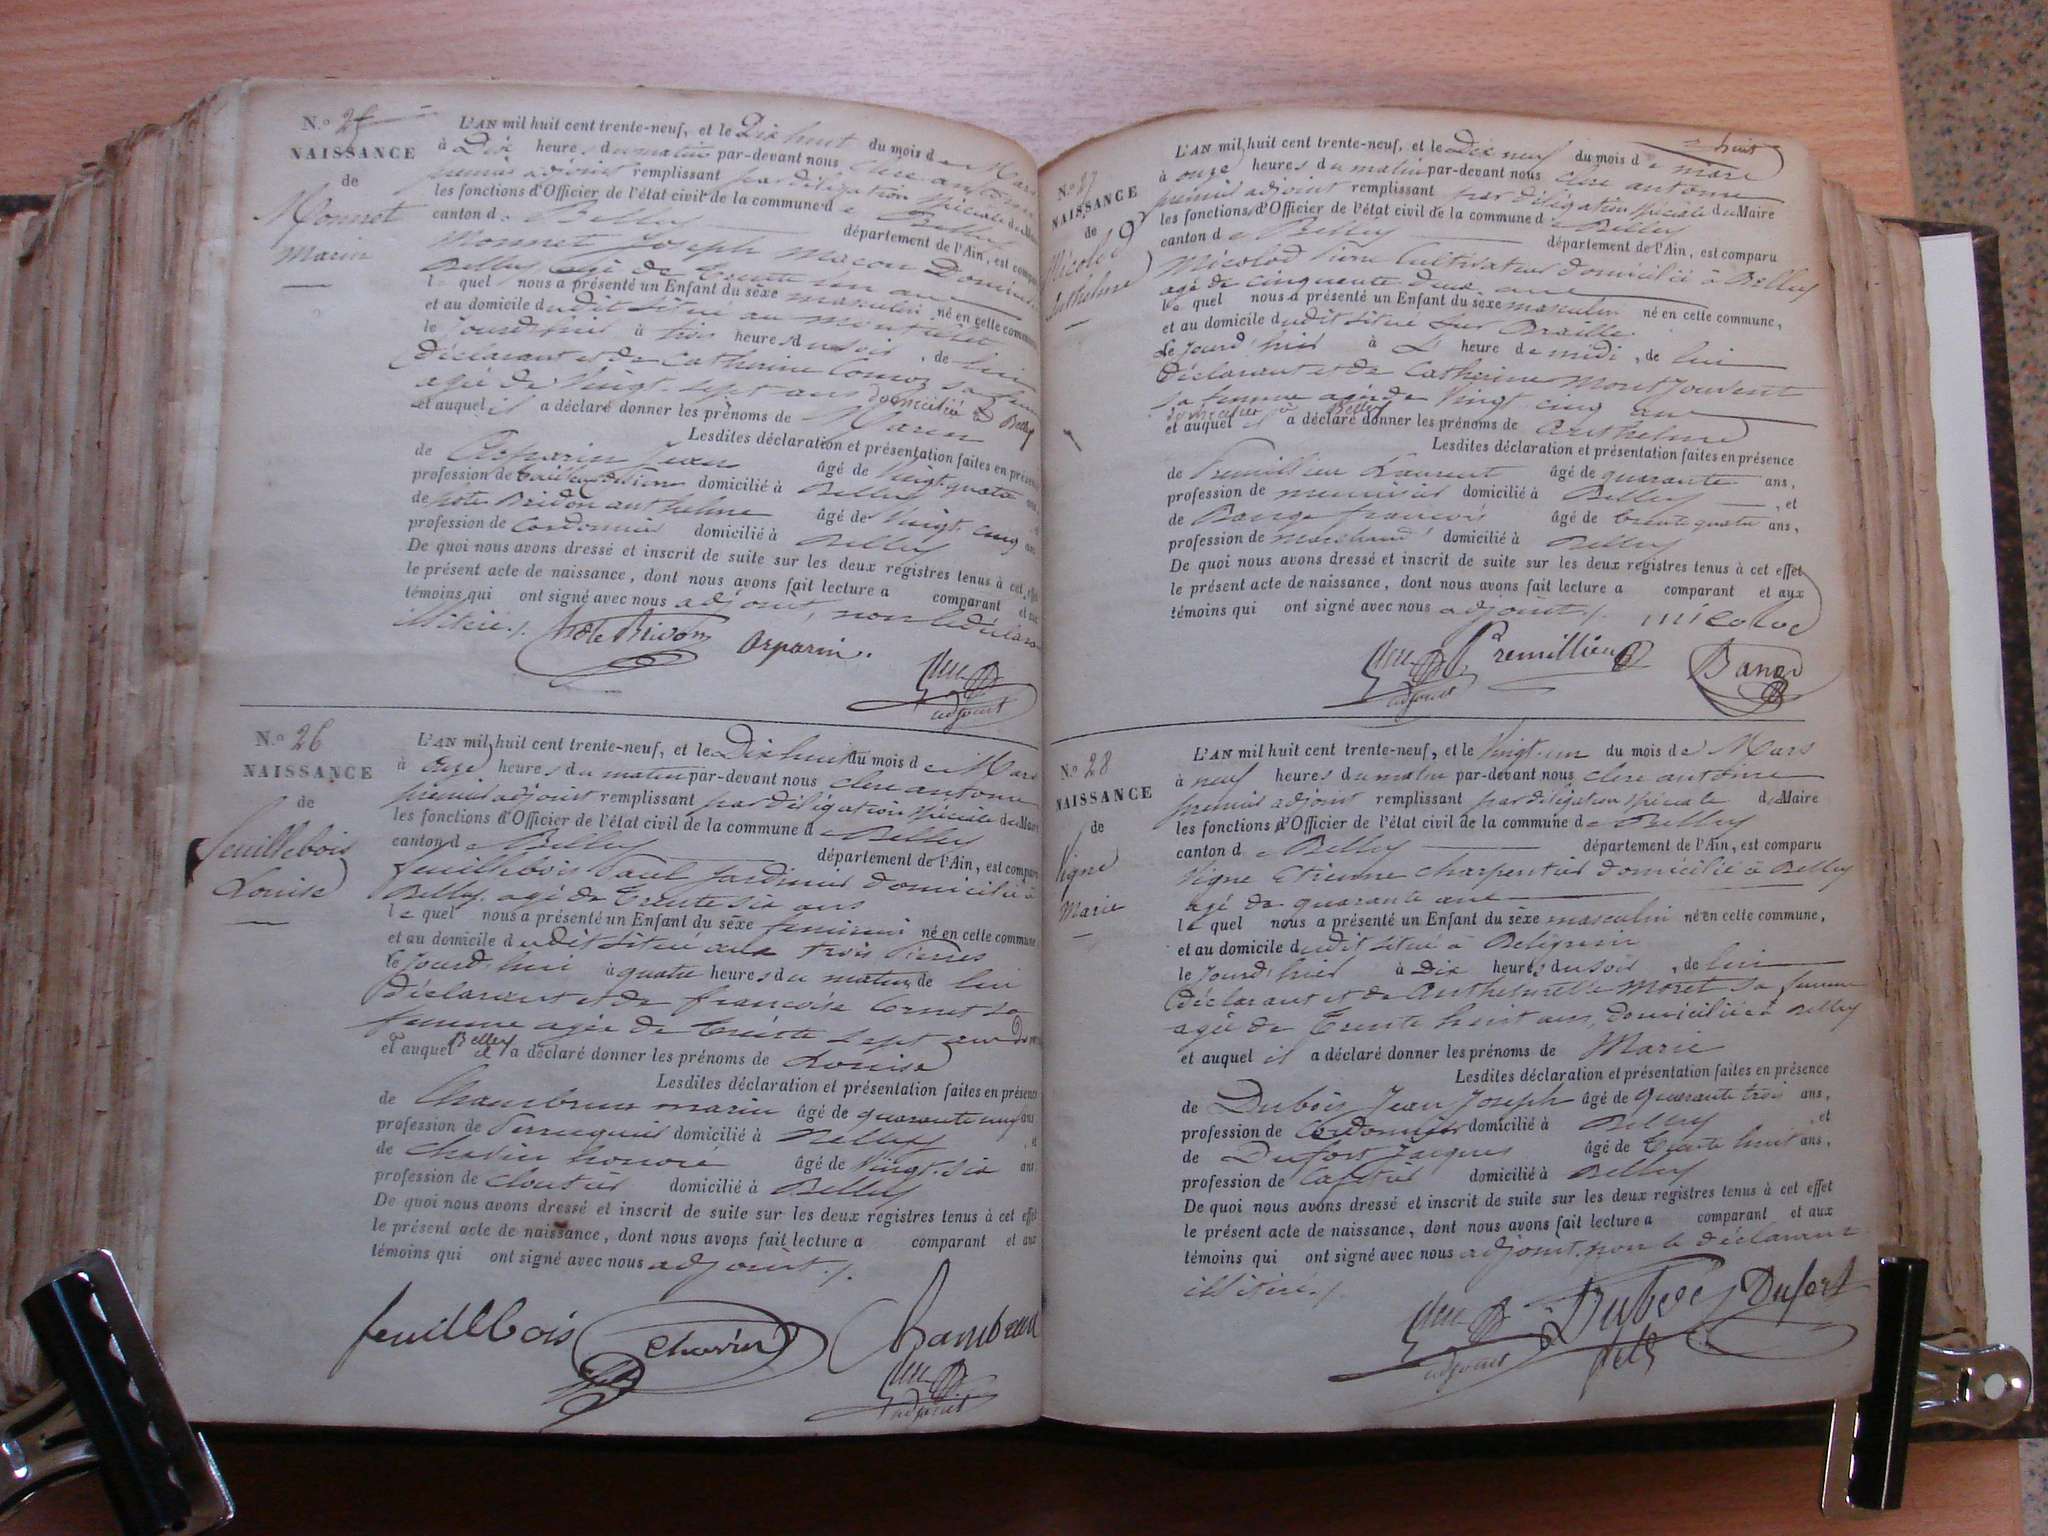 N.o 25
NAISSANCE
de
Monnet
Marin
L'AN mil huit cent trente-neuf, et le Dix huit du mois de Mars
à Dix heures du matin par-devant nous Clerc antoine
premier adjoint remplissant par délégation spéciale du Maire
les fonctions d'Officier de l'état civil de la commune de Belley
canton de Belley département de l'Ain, est comparu
Monnet Joseph Macon Domicilié
Belley agé de trente un an
lequel nous a présenté un Enfant du sexe masculin né en cette commune
et au domicile dudit situé au
le jourd'hier à trois heures du soir, de lui
déclarant et de Catherine sa femme
agée de Vingt sept ans domiciliée à Belley
et auquel il a déclaré donner les prénoms de Marin
Lesdites déclaration et présentation faites en présence
de Asparin Jean âgé de Vingt quatre ans
profession de tailleur de domicilié à Belley
de hote Bridon anthelme âgé de Vingt cinq ans
profession de Cordonnier domicilié à Belley
De quoi nous avons dressé et inscrit de suite sur les deux registres tenus à cet effet
le présent acte de naissance, dont nous avons fait lecture a comparant et aux
témoins qui ont signé avec nous adjoint, non le déclarant
illitéré ./.
hote Bridon asparin.
Clerc
adjoint
N.o 26
NAISSANCE
de
feuillebois
Louise
L'AN mil huit cent trente-neuf, et le Dix huit du mois de Mars
à onze heures du matin par-devant nous Clerc antoine
premier adjoint remplissant par délégation spéciale du Maire
les fonctions d'Officier de l'état civil de la commune de Belley
canton de Belley département de l'Ain, est comparu
feuillebois Paul Jardinier domicilié à
Belley agé de trente six ans
lequel nous a présenté un Enfant du sexe feminin né en cette commune
et au domicile dudit situé aux trois Pierres
le jourd'hui à quatre heures du matin, de lui
déclarant et de françoise Cornet sa
femme agée de trente sept ans
Belley
et auquel il a déclaré donner les prénoms de Louise
Lesdites déclaration et présentation faites en présence
de Chambrun marin âgé de quarante neuf ans,
profession de Perruquier domicilié à Belley, et
de Chavin honoré âgé de Vingt six ans
profession de Cloutier domicilié à Belley
De quoi nous avons dressé et inscrit de suite sur les deux registres tenus à cet effet
le présent acte de naissance, dont nous avons fait lecture a comparant et aux
témoins qui ont signé avec nous adjoint ./.
feuillebois chavin
Clerc
adjoint
N.o 27
NAISSANCE
de
Micolod
Anthelme
L'AN mil huit cent trente-neuf, et le Dix neuf du mois de mars
à onze heures du matin par-devant nous Clerc antoine
premier adjoint remplissant par délégation spéciale du Maire
les fonctions d'Officier de l'état civil de la commune de Belley
canton de Belley département de l'Ain, est comparu
Micolod Pierre Cultivateur domicilié à Belley
agé de cinquante deux ans
lequel nous a présenté un Enfant du sexe masculin né en cette commune,
et au domicile dudit situé sur Braille
le jourd'hier à l' heure de midi, de lui
déclarant et de Catherine Montjouvent
sa femme agée de Vingt cinq ans
domiciliée à Belley
et auquel il a déclaré donner les prénoms de Anthelme
Lesdites déclaration et présentation faites en présence
de Premillieu Laurent âgé de quarante ans,
profession de menuisier domicilié à Belley, et
de Bange françois âgé de trente quatre ans,
profession de Marchand domicilié à Belley
De quoi nous avons dressé et inscrit de suite sur les deux registres tenus à cet effet
le présent acte de naissance, dont nous avons fait lecture a comparant et aux
témoins qui ont signé avec nous adjoint ./. micolod
Clerc Premillieu Bange
adjoint
N.o 28
NAISSANCE
de
Vigne
Marie
L'AN mil huit cent trente-neuf, et le Vingt-un du mois de Mars
à neuf heures du matin par-devant nous Clerc antoine
premier adjoint remplissant par délégation spéciale du Maire
les fonctions d'Officier de l'état civil de la commune de Belley
canton de Belley département de l'Ain, est comparu
Vigne Etienne Charpentier domicilié à Belley
agé de quarante ans
lequel nous a présenté un Enfant du sexe masculin né en cette commune,
et au domicile dudit situé à Belignin
le jourd'hier à Dix heures du soir, de lui
déclarant et de Anthelmette Moret sa femme
agée de Trente huit ans, domiciliée à Belley
et auquel il a déclaré donner les prénoms de Marie
Lesdites déclaration et présentation faites en présence
de Dubois Jean Joseph âgé de quarante trois ans,
profession de Cordonnier domicilié à Belley, et
de Dufort Jacques âgé de trente huit ans,
profession de domicilié à Belley
De quoi nous avons dressé et inscrit de suite sur les deux registres tenus à cet effet
le présent acte de naissance, dont nous avons fait lecture a comparant et aux
témoins qui ont signé avec nous adjoint, non le déclarant
illitéré ./.
Clerc Dubois Dufort
adjoint